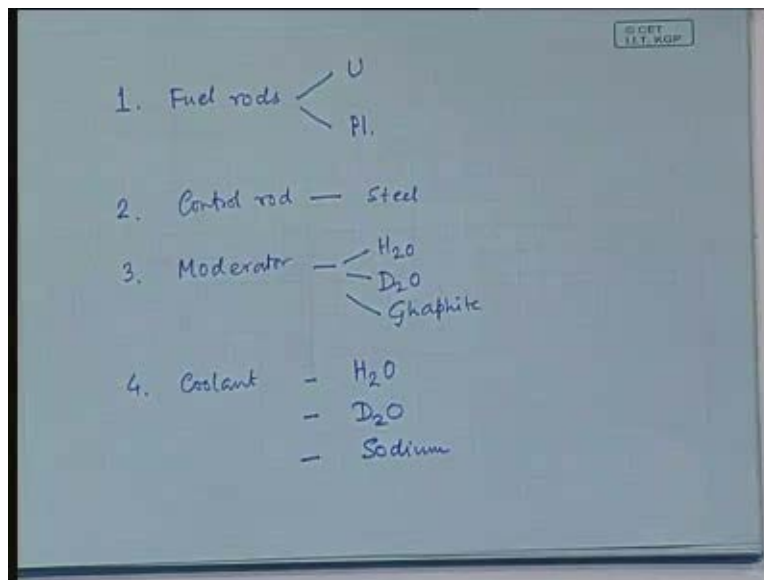 © CET
I.I.T. KGP
U
1. Fuel rods
Pl.
2. Control rod — Steel
H2O
3. Moderator —
D2O
Ghaphite
4. Coolant - H2O
- D2O
- Sodium